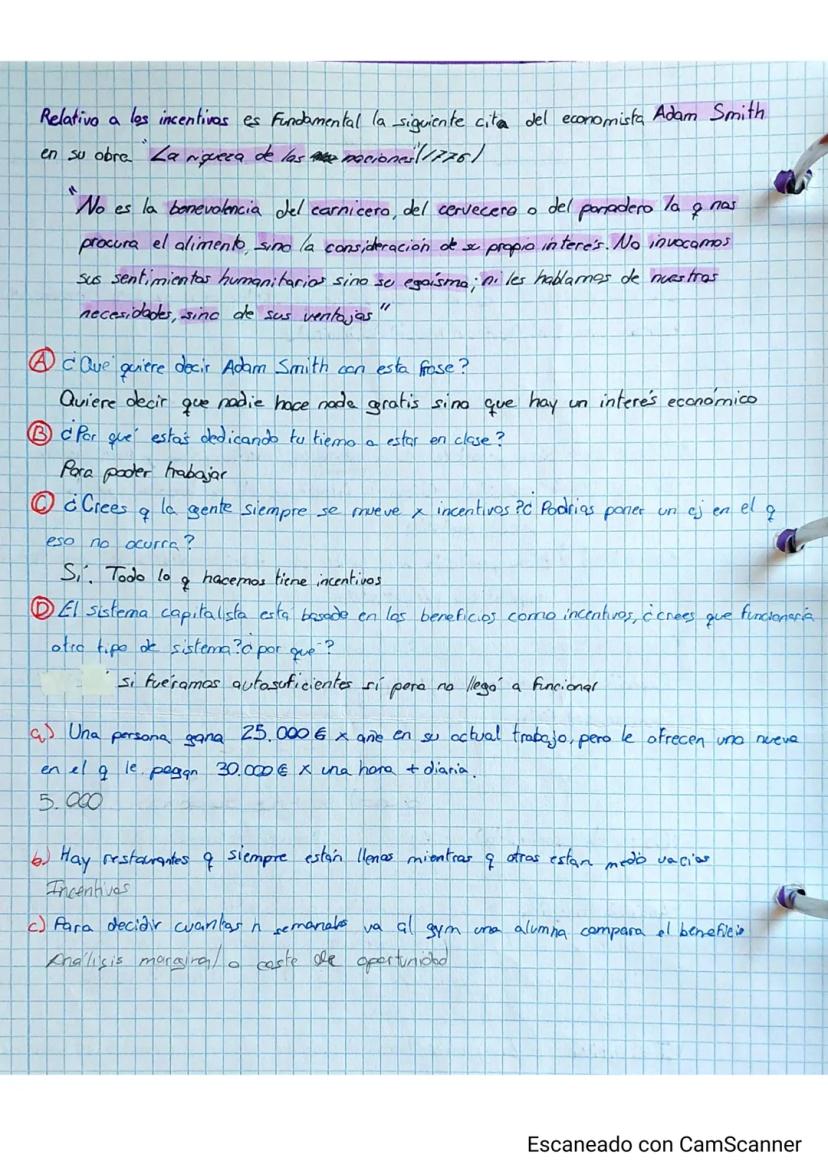 Relativo a los incentivos es Fundamental la siguiente cita del economista Adam Smith
en su obra "La riqueza de las naciones"(1776)
"No es la benevolencia del carnicero, del cervecero o del panadero la q nos
procura el alimento, sino la consideración de su propio interés. No invocamos
sus sentimientos humanitarios sino su egoísmo; ni les hablamos de nuestras
necesidades, sino de sus ventajas"
A ¿Qué quiere decir Adam Smith con esta frase?
Quiere decir que nadie hace nada gratis sino que hay un interés económico
B ¿Por qué estás dedicando tu tiemo a estar en clase?
Para poder trabajar
C ¿Crees q la gente siempre se mueve x incentivos?¿Podrias poner un ej en el q
eso no ocurra?
Sí. Todo lo q hacemos tiene incentivos
D El sistema capitalista esta basado en los beneficios como incentivos, ¿crees que funcionaría
otro tipo de sistema?¿por qué?
si fuéramos autosuficientes sí pero no llegó a funcionar
a) Una persona gana 25.000€ x año en su actual trabajo, pero le ofrecen uno nuevo
en el q le pagan 30.000€ x una hora + diaria.
5.000
b) Hay restaurantes q siempre están llenos mientras q otros estan medio vacios
Incentivos
c) Para decidir cuantas h semanales va al gym una alumna compara el beneficio
Análisis marginal o coste de oportunidad
Escaneado con CamScanner